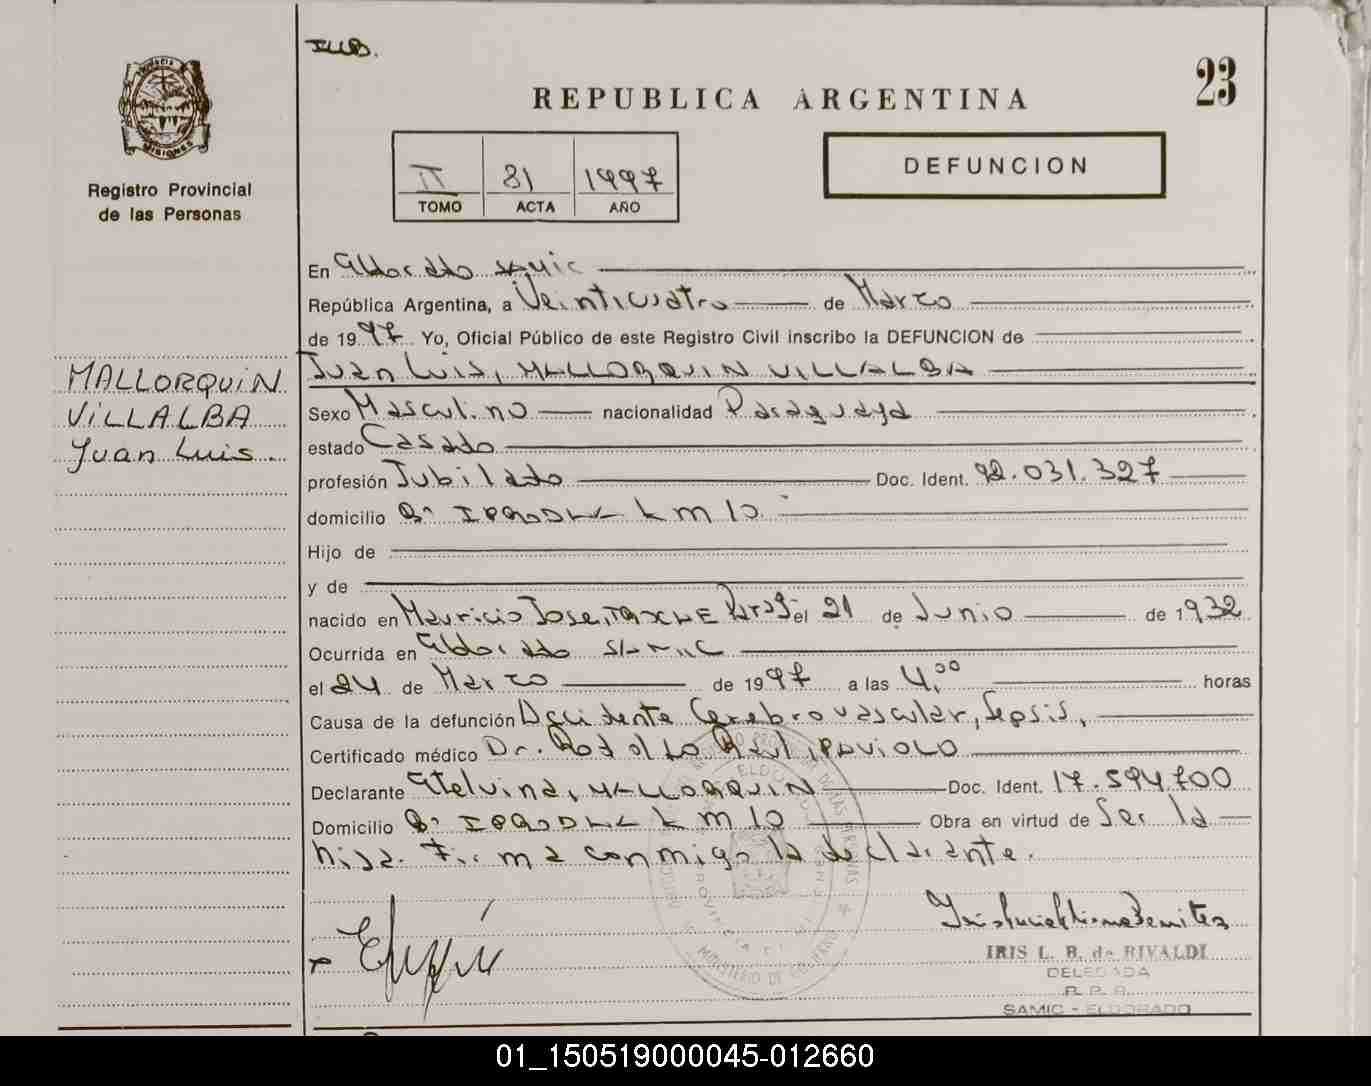 IUB.
23
REPUBLICA ARGENTINA
PROVINCIA
MISIONES
Registro Provincial
de las Personas
II 81 1997
TOMO ACTA AÑO
DEFUNCION
En Eldorado SAMIC
República Argentina, a Veinticuatro de Marzo
de 1997 Yo, Oficial Público de este Registro Civil inscribo la DEFUNCION de
Juan Luis, MALLORQUIN VILLALBA
MALLORQUiN
ViLLALBA
Juan Luis.
Sexo Masculino nacionalidad Paraguaya
estado Casado
profesión Jubilado Doc. Ident. 92.031.327
domicilio Bº km 10.
Hijo de
y de
nacido en Mauricio Jose, el 21 de Junio de 1932
Ocurrida en Eldorado SAMIC
el 24 de Marzo de 1997 a las 4,00 horas
Causa de la defunción Accidente Cerebro vascular, Sepsis,
Certificado médico Dr. Rodolfo Raul, PAVIOLO
Declarante Etelvina, MALLORQUIN Doc. Ident. 17.594.700
Domicilio Bº km 10 Obra en virtud de Ser la
hija. Firma conmigo la declarante.
IRIS L. B. de RIVALDI
DELEGADA
R. P. P.
SAMIC - ELDORADO
01_150519000045-012660